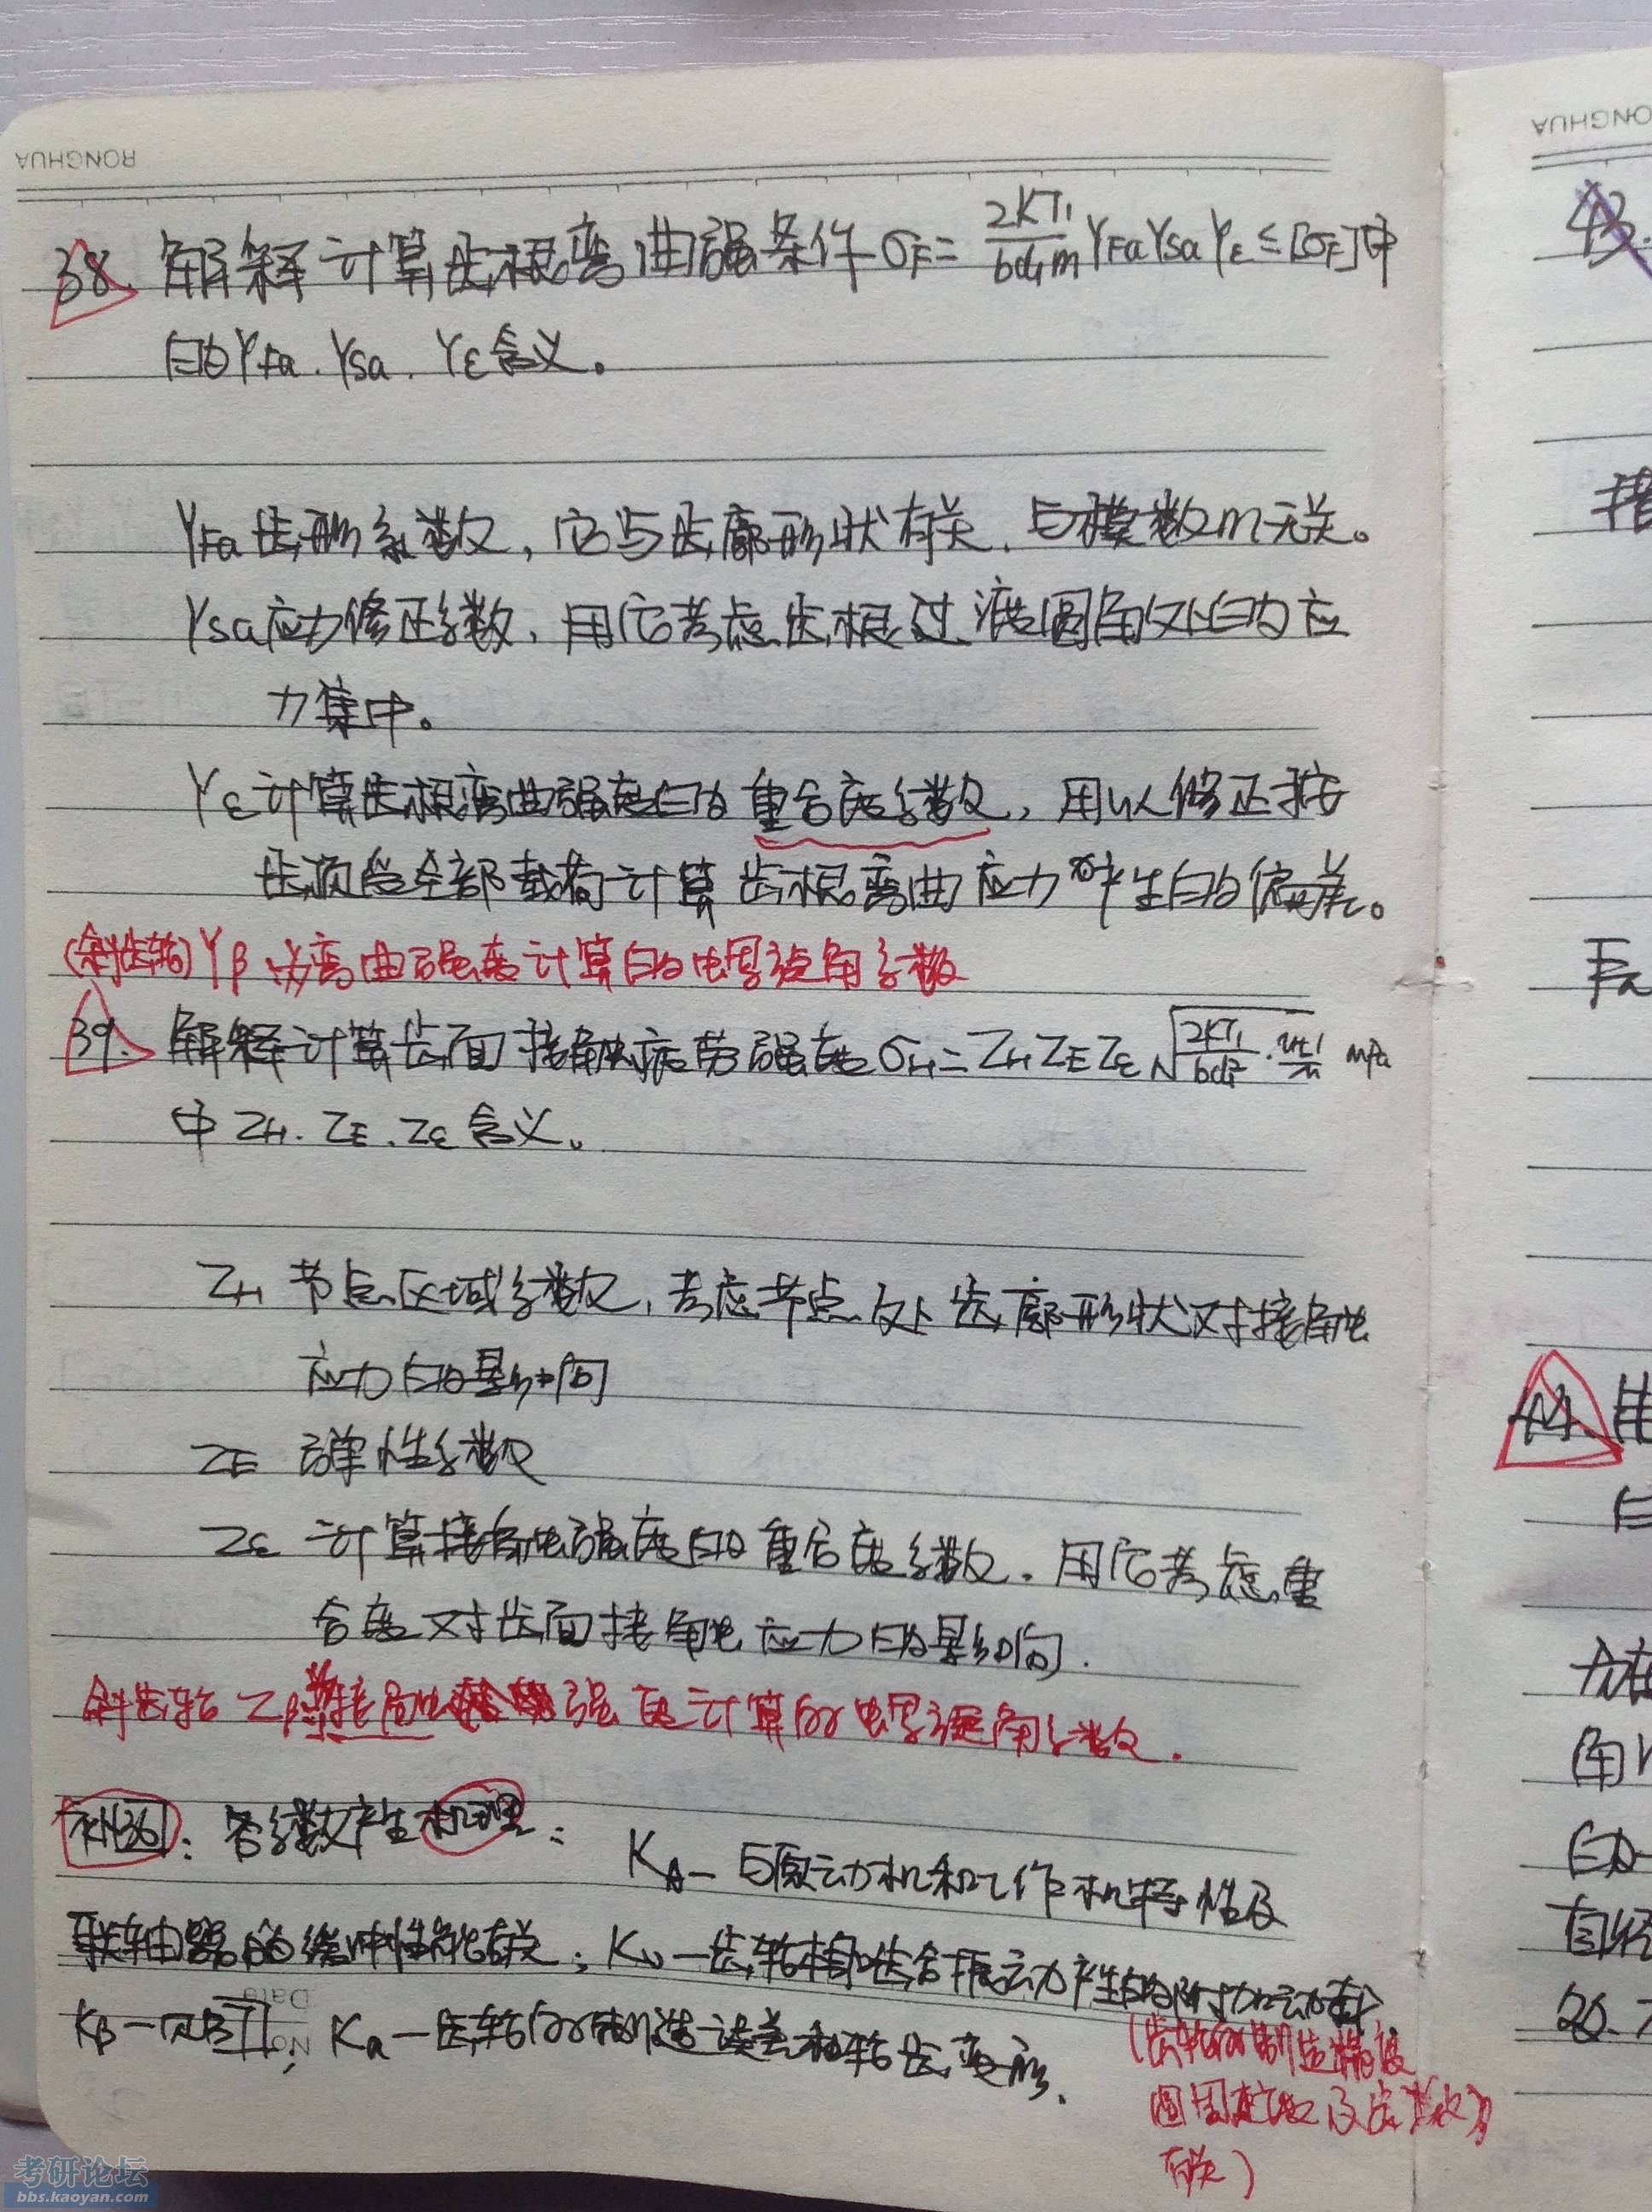 RONGHUA
38. 解释计算齿根弯曲强条件σF=2KT1/bd1m YFaYSaYε≤[σF]中
的YFa.YSa.Yε含义。
YFa齿形系数,它与齿廓形状有关,与模数m无关。
YSa应力修正系数,用它考虑齿根过渡圆角处的应
力集中。
Yε计算齿根弯曲强度的重合度系数,用以修正按
齿顶受全部载荷计算齿根弯曲应力产生的偏差。
(斜齿轮)Yβ 为弯曲强度计算的螺旋角系数
39. 解释计算齿面接触疲劳强度σH=ZHZEZε√(2KT1/bd1²·u±1/u) MPa
中ZH.ZE.Zε含义。
ZH 节点区域系数,考虑节点处齿廓形状对接触
应力的影响
ZE 弹性系数
Zε 计算接触强度的重合度系数.用它考虑重
合度对齿面接触应力的影响.
斜齿轮 Zβ 接触强度计算的螺旋角系数.
补36:各系数产生机理:KA—与原动机和工作机特性及
联轴器的缓冲性能有关;Kv—齿轮啮合振动产生的附加动载
Kβ—; Kα—齿轮的制造误差和轮齿变形.
(齿轮的制造精度
圆周速度及齿数
有关)
RONGHUA
43.
44.
考研论坛
bbs.kaoyan.com